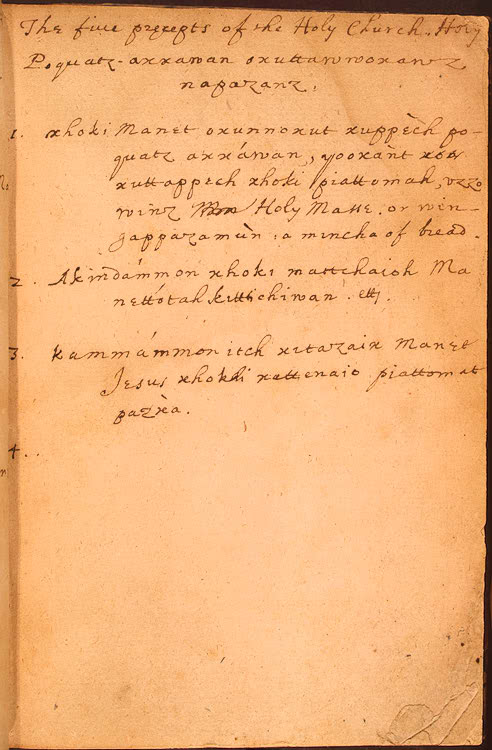 The five precepts of the Holy Church. Holy
Poquatz-axxawan oxuttawwoxawz
napazanz.
1. xhoki Manet oxunnoxut xuppèch po-
quatz axxáwan, yooxànt
xuttappech xhoki piattomah, uzzo
winz Holy Masse. or win-
gappazamùn : a mincha of bread.
2. Akindámmon xhoki mattchaioh Ma
nettòtah kittichiwan. etti.
3. kammámmonitch xitazaix Manet
Jesus xhokki xattenaio piattomat
pazxa.
4.